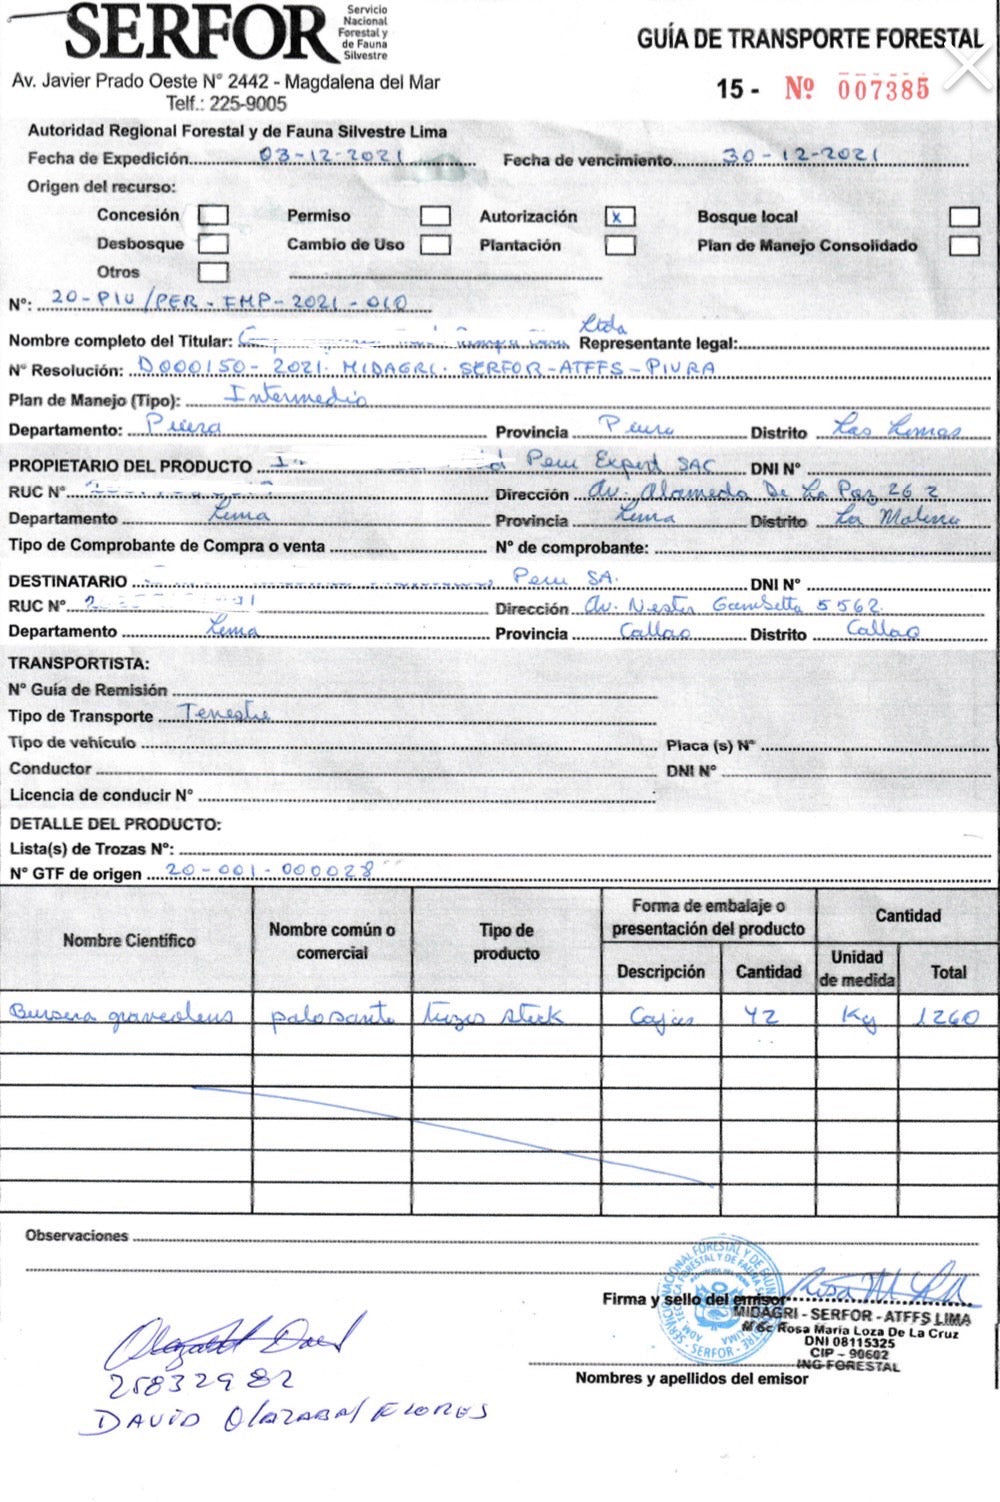 SERFOR
Servicio
Nacional
Forestal y
de Fauna
Silvestre
Av. Javier Prado Oeste N° 2442 - Magdalena del Mar
Telf.: 225-9005
GUÍA DE TRANSPORTE FORESTAL
15 - Nº 007385
Autoridad Regional Forestal y de Fauna Silvestre Lima
Fecha de Expedición 03-12-2021 Fecha de vencimiento 30-12-2021
Origen del recurso:
Concesión Permiso Autorización x Bosque local
Desbosque Cambio de Uso Plantación Plan de Manejo Consolidado
Otros
N°: 20-PIU/PER-FMP-2021-010
Nombre completo del Titular: Ltda Representante legal:
N° Resolución: D000150-2021-MIDAGRI-SERFOR-ATFFS-PIURA
Plan de Manejo (Tipo): Intermedio
Departamento: Piura Provincia Piura Distrito Las Lomas
PROPIETARIO DEL PRODUCTO Peru Export SAC DNI N°
RUC N° Dirección Av. Alameda De La Paz 262
Departamento Lima Provincia Lima Distrito La Molina
Tipo de Comprobante de Compra o venta N° de comprobante:
DESTINATARIO Peru SA. DNI N°
RUC N° Dirección Av. Nestor Gambetta 5562
Departamento Lima Provincia Callao Distrito Callao
TRANSPORTISTA:
N° Guía de Remisión
Tipo de Transporte Terrestre
Tipo de vehículo Placa (s) N°
Conductor DNI N°
Licencia de conducir N°
DETALLE DEL PRODUCTO:
Lista(s) de Trozas N°:
N° GTF de origen 20-001-0000028
Nombre Científico Nombre común o comercial Tipo de producto Forma de embalaje o presentación del producto Cantidad
Descripción Cantidad Unidad de medida Total
Bursera graveolens palo santo stick Cajas 42 Kg 1260
Observaciones
Firma y sello del emisor
MIDAGRI - SERFOR - ATFFS LIMA
M Sc Rosa María Loza De La Cruz
DNI 08115325
CIP - 90602
ING FORESTAL
Nombres y apellidos del emisor
25832982
DAVID OLAZABAL FLORES